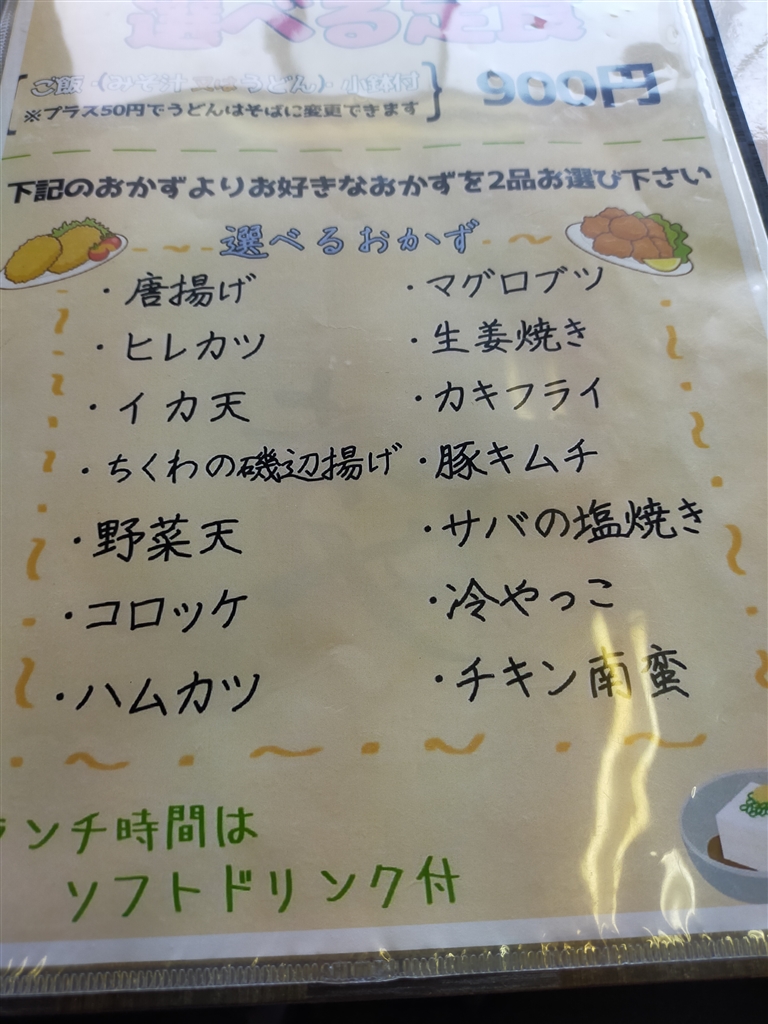 選べる定食
ご飯・(みそ汁又はうどん)・小鉢付
900円
※プラス50円でうどんはそばに変更できます
下記のおかずよりお好きなおかずを2品お選び下さい
選べるおかず
・唐揚げ
・ヒレカツ
・イカ天
・ちくわの磯辺揚げ
・野菜天
・コロッケ
・ハムカツ
・マグロブツ
・生姜焼き
・カキフライ
・豚キムチ
・サバの塩焼き
・冷やっこ
・チキン南蛮
ランチ時間は
ソフトドリンク付